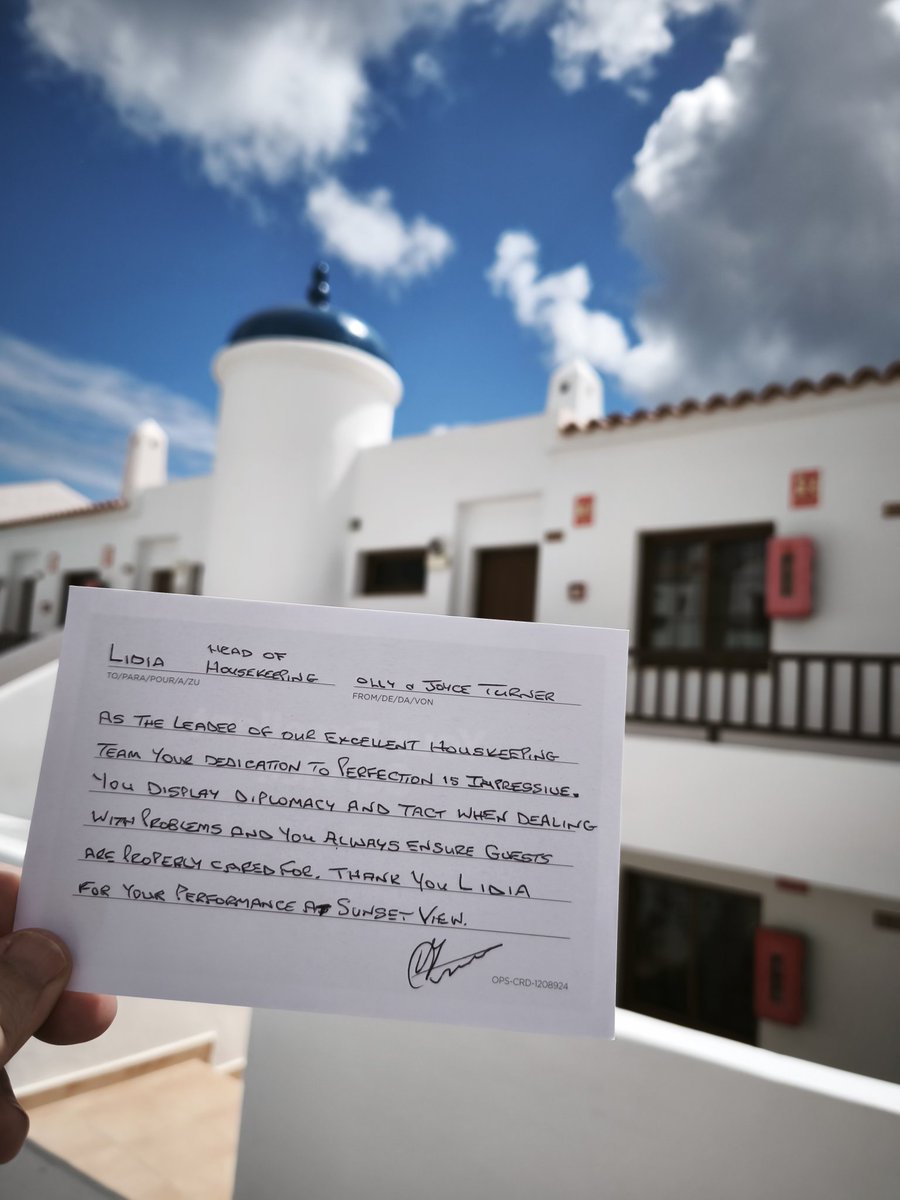 LIDIA HEAD OF HOUSEKEEPING
TO/PARA/POUR/A/ZU
OLLY & JOYCE TURNER
FROM/DE/DA/VON
AS THE LEADER OF OUR EXCELLENT HOUSKEEPING
TEAM YOUR DEDICATION TO PERFECTION IS IMPRESSIVE.
YOU DISPLAY DIPLOMACY AND TACT WHEN DEALING
WITH PROBLEMS AND YOU ALWAYS ENSURE GUESTS
ARE PROPERLY CARED FOR. THANK YOU LIDIA
FOR YOUR PERFORMANCE AT SUNSET VIEW.
OPS-CRD-1208924